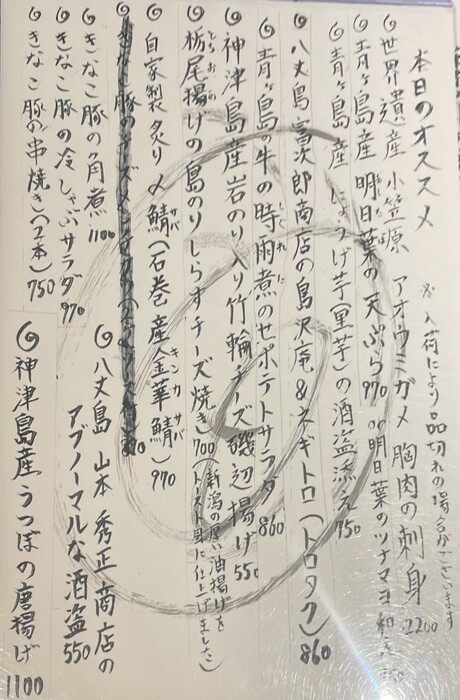 本日のオススメ
※入荷により品切れの場合がございます
世界遺産 小笠原 アオウミガメ 胸肉の刺身 2200
青ヶ島産 明日葉の天ぷら 970 or 明日葉のツナマヨ和え
青ヶ島産 にょろげ芋(里芋)の酒盗添え 750
八丈島 富次郎商店の島沢庵&ネギトロ(トロタク) 860
青ヶ島の牛の時雨煮のせポテトサラダ 860
しぐれに
神津島産岩のり入り竹輪チーズ磯辺揚げ 550
栃尾揚げの島のりしらすチーズ焼き 700
とちお
(新潟の厚い油揚げを
トースト風に仕上げました)
自家製炙り〆鯖(石巻産金華鯖) 970
サバ
キンカサバ
きなこ豚の角煮 1100
きなこ豚の冷しゃぶサラダ 970
きなこ豚の串焼き(2本) 750
八丈島 山本秀正商店の
アブノーマルな酒盗 550
神津島産うつぼの唐揚げ 1100